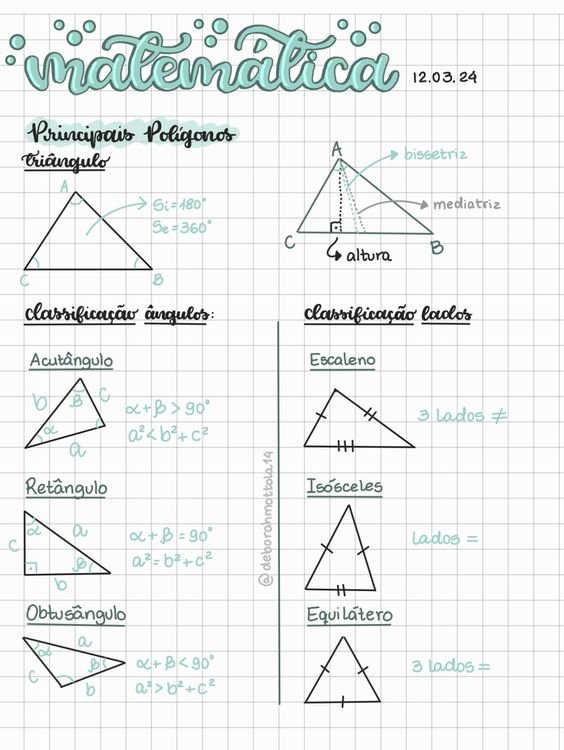 matemática 12.03.24
Principais Polígonos
triângulo
A
Si=180°
Se=360°
C
B
A
bissetriz
mediatriz
C
B
altura
classificação ângulos:
Acutângulo
b
β
c
α
a
α+β > 90°
a²<b²+c²
Retângulo
α
a
c
β
b
α+β=90°
a²=b²+c²
Obtusângulo
a
α
β
c
b
α+β<90°
a²>b²+c²
@deborahmottola14
classificação lados
Escaleno
3 lados ≠
Isósceles
lados =
Equilátero
3 lados =